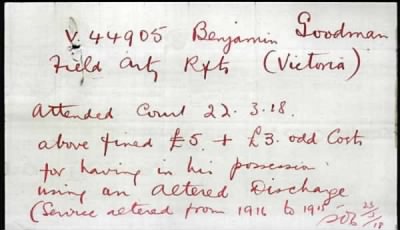 V. 44905 Benjamin Goodman
Field Arty Rfts (Victoria)
Attended Court 22.3.18.
above fined £5. + £3. odd Costs
for having in his possession
using an Altered Discharge
(Service altered from 1916 to 1915
23/3/18